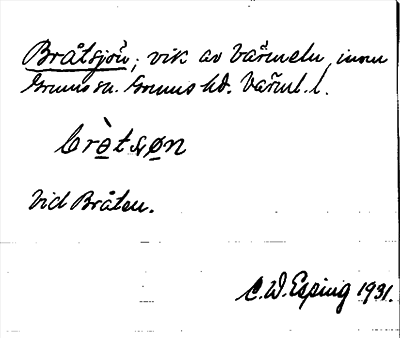 Bråtsjön; vik av Värmeln, inom
Grums sn. Grums hd. Värml. l.
bròtsøn
Vid Bråten.
C.W. Esping 1931.